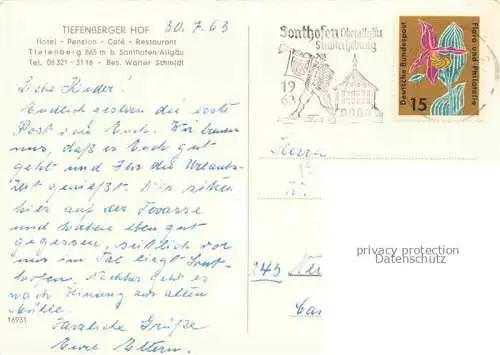 TIEFENBERGER HOF
30.7.63
Hotel - Pension - Café - Restaurant
Tiefenberg 865 m b. Sonthofen-Allgäu
Tel. 08321-3116 - Bes. Walter Schmidt
Liebe Kinder!
Endlich gestern die erste
Post von Euch. Wir freuen
uns, daß es Euch gut
geht und Ihr die Urlaubs-
zeit genießt. Wir sitzen
hier auf der Terasse
und haben eben gut
gegessen, seitlich vor
uns im Tal liegt Sont-
hofen. Nachher geht es
nach Hinang zur alten
Mühle.
Herzliche Grüße
Eure Eltern.
16931
Sonthofen Oberallgäu
Stadterhebung
19
63
Deutsche Bundespost
Flora und Philatelie
15
Herrn
privacy protection
Datenschutz